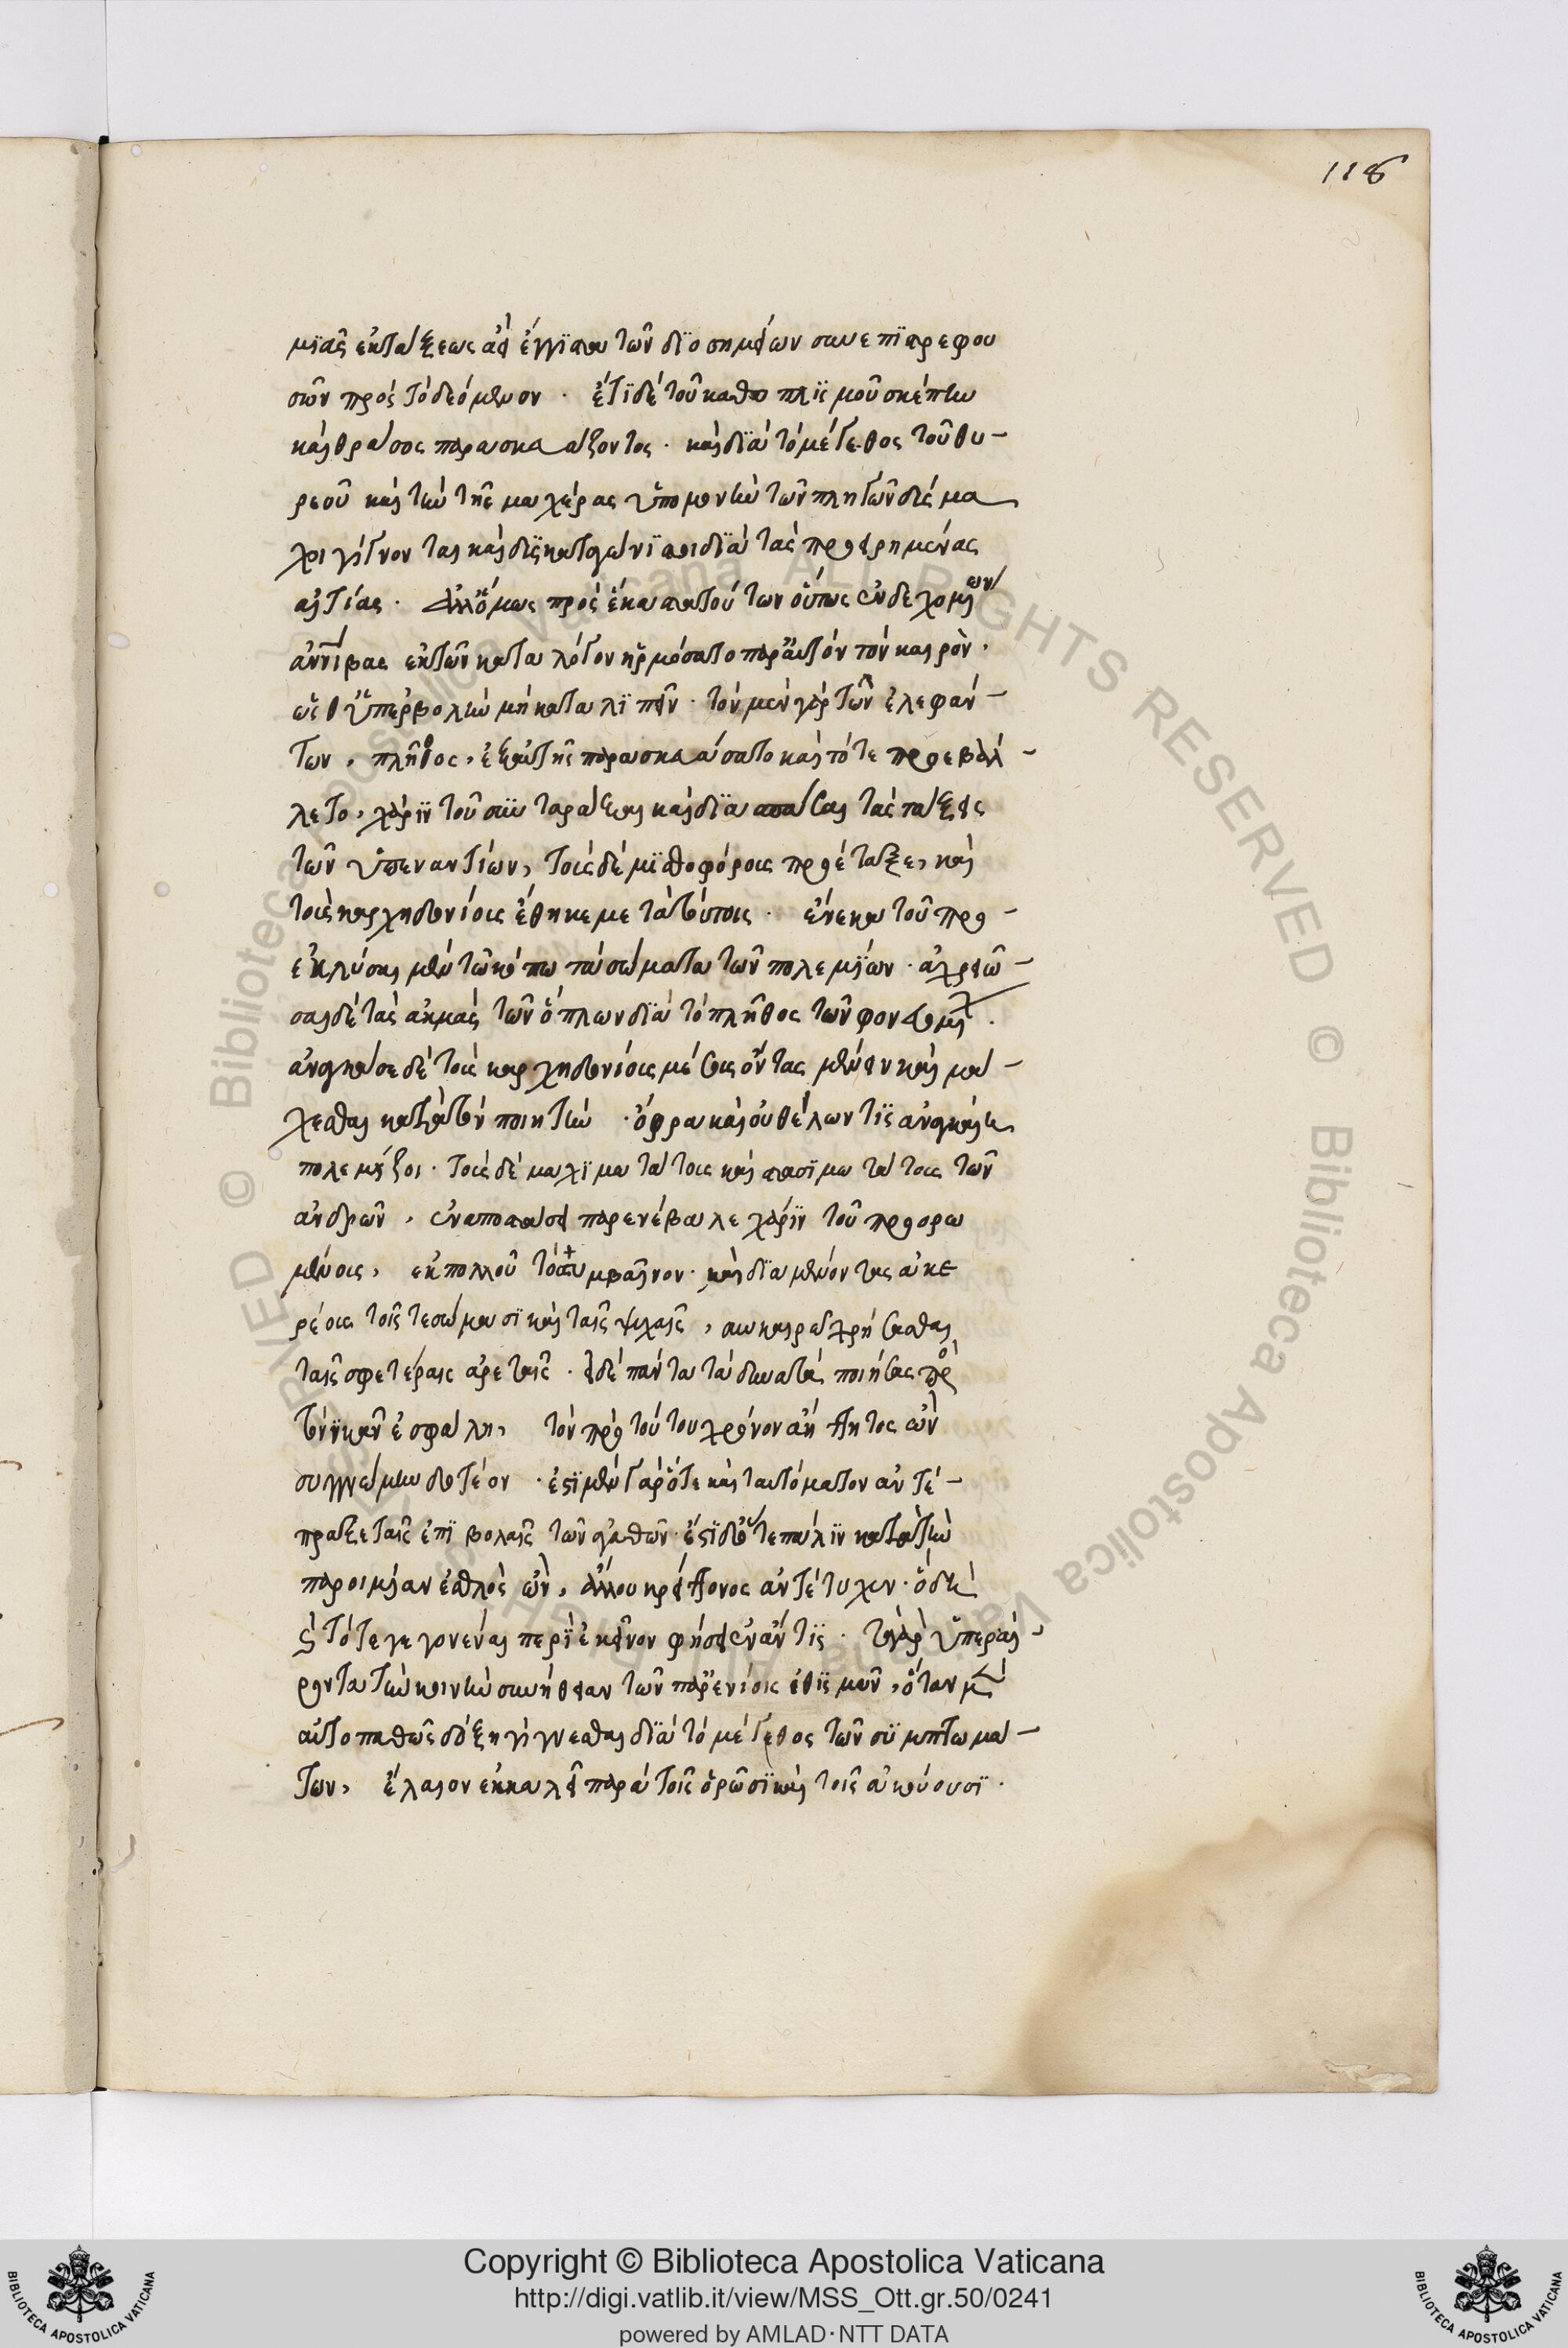 118
μϊας εκτάξεως ἀεὶ ἔγγϊστα τῶν δϊο σημείων συνεπϊστρεφου
σῶν πρὸς τὸ δεόμενον · ἔτϊ δὲ τοῦ καθοπλϊσμοῦ σκέπην
καὶ θράσος παρασκευάζοντος · καὶ δϊὰ τὸ μέγεθος τοῦ θυ-
ρεοῦ καὶ τὴν τῆς μαχαίρας ὑπομονὴν τῶν πληγῶν δϊσμα
χοι γίγνονται καὶ δϊσκαταγώνϊστοι δϊὰ τὰς προειρημένας
αἰτίας · ἀλλ' ὅμως πρὸς ἕκαστα τούτων οὕτως ἐνδεχομένων
ἀννίβας ἐκ τῶν κατὰ λόγον ἡρμόσατο παρ' αὐτὸν τὸν καιρὸν ·
ὥσθ' ὑπερβολὴν μὴ καταλϊπεῖν · τὸν μὲν γὰρ τῶν ἐλεφάν-
των, πλῆθος, ἐξ αὐτῆς παρασκευάσατο καὶ τότε προεβάλ-
λετο, χάρϊν τοῦ σϋνταράξαι καὶ δϊασπάσαι τὰς τάξεις
τῶν ὑπεναντίων, τοὺς δὲ μϊσθοφόρους προέταξε, καὶ
τοὺς καρχηδονίους ἔθηκε μετὰ τούτοις · εἵνεκα τοῦ προ-
εκλύσαι μὲν τῶ κόπω τὰ σώματα τῶν πολεμϊων · ἀχρειῶ-
σαι δὲ τὰς ἀκμὰς τῶν ὅπλων δϊὰ τὸ πλῆθος τῶν φονευομένων ·
ἀναγκάσαι δὲ τοὺς καρχηδονίους μέσους ὄντας μένειν καὶ μά-
χεσθαι κατὰ τὸν ποιητὴν · ὄφρα καὶ οὐθέλων τϊς ἀναγκαίη
πολεμίζοι · τοὺς δὲ μαχϊμωτάτους καὶ στασϊμωτάτους τῶν
ἀνδρῶν, ἐν ἀποστάσει παρενέβαλε χάρϊν τοῦ προορω
μένους, ἐκ πολλοῦ τὸ συμβαῖνον · καὶ δϊαμένοντας ἀκε
ραίους τοῖς τε σώμασϊ καὶ ταῖς ψυχαῖς, συνκαιρῶ χρήσασθαι
ταῖς σφετέραις ἀρεταῖς · εἰ δὲ πάντα τὰ δυνατὰ ποιήσας πρὸς
τὸ νϊκᾶν ἐσφάλη, τὸν πρὸ τούτου χρόνον ἀήττητος ὢν
συγγνώμην δοτέον · ἔστϊ μὲν γὰρ ὅτε καὶ ταυτόματον ἀντέ-
πραξε ταῖς ἐπϊβολαῖς τῶν ἀγαθῶν · ἔστϊ δ' ὅτε πάλϊν κατὰ τὴν
παροιμίαν ἐσθλὸς ὢν, ἄλλου κρείττονος ἀντέτυχεν · ὃ δὴ
καὶ τότε γεγονέναι περὶ ἐκεῖνον φήσειεν ἄν τϊς · τὰ γὰρ ὑπεραί-
ροντα τὴν κοινὴν συνήθειαν τῶν παρ' ἐνίοις ἐθϊσμῶν, ὅταν μὲν
αὐτοπαθῶς δόξη γίγνεσθαι δϊὰ τὸ μέγεθος τῶν σϋμπτωμά-
των, ἔλαιον ἐκκαλεῖ παρὰ τοῖς ὁρῶσϊ καὶ τοῖς ἀκούουσϊ ·
Copyright © Biblioteca Apostolica Vaticana
http://digi.vatlib.it/view/MSS_Ott.gr.50/0241
powered by AMLAD·NTT DATA